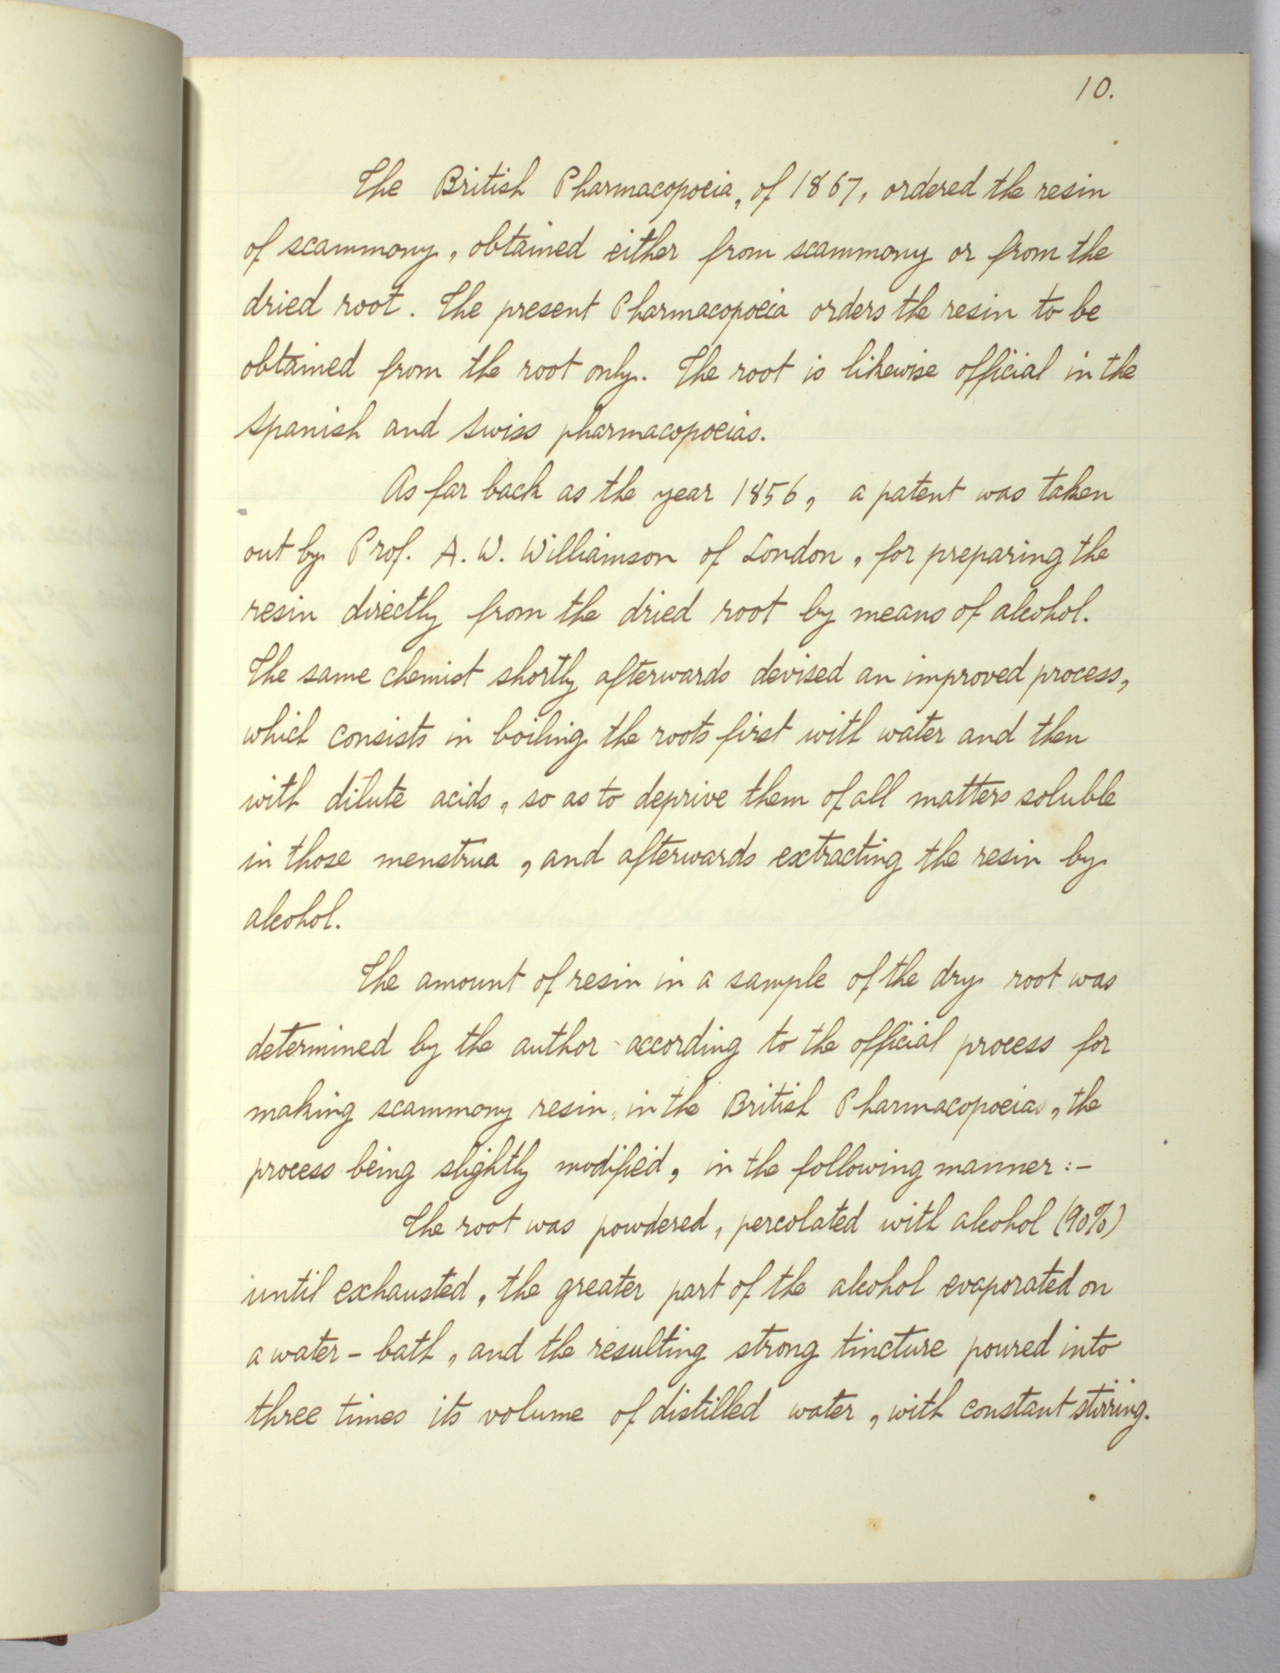 10.
The British Pharmacopoeia, of 1867, ordered the resin
of scammony, obtained either from scammony or from the
dried root. The present Pharmacopoeia orders the resin to be
obtained from the root only. The root is likewise official in the
Spanish and Swiss pharmacopoeias.
As far back as the year 1856, a patent was taken
out by Prof. A. W. Williamson of London, for preparing the
resin directly from the dried root by means of alcohol.
The same chemist shortly afterwards devised an improved process,
which consists in boiling the roots first with water and then
with dilute acids, so as to deprive them of all matters soluble
in those menstrua, and afterwards extracting the resin by
alcohol.
The amount of resin in a sample of the dry root was
determined by the author according to the official process for
making scammony resin, in the British Pharmacopoeia, the
process being slightly modified, in the following manner:-
The root was powdered, percolated with alcohol (90%)
until exhausted, the greater part of the alcohol evaporated on
a water-bath, and the resulting strong tincture poured into
three times its volume of distilled water, with constant stirring.